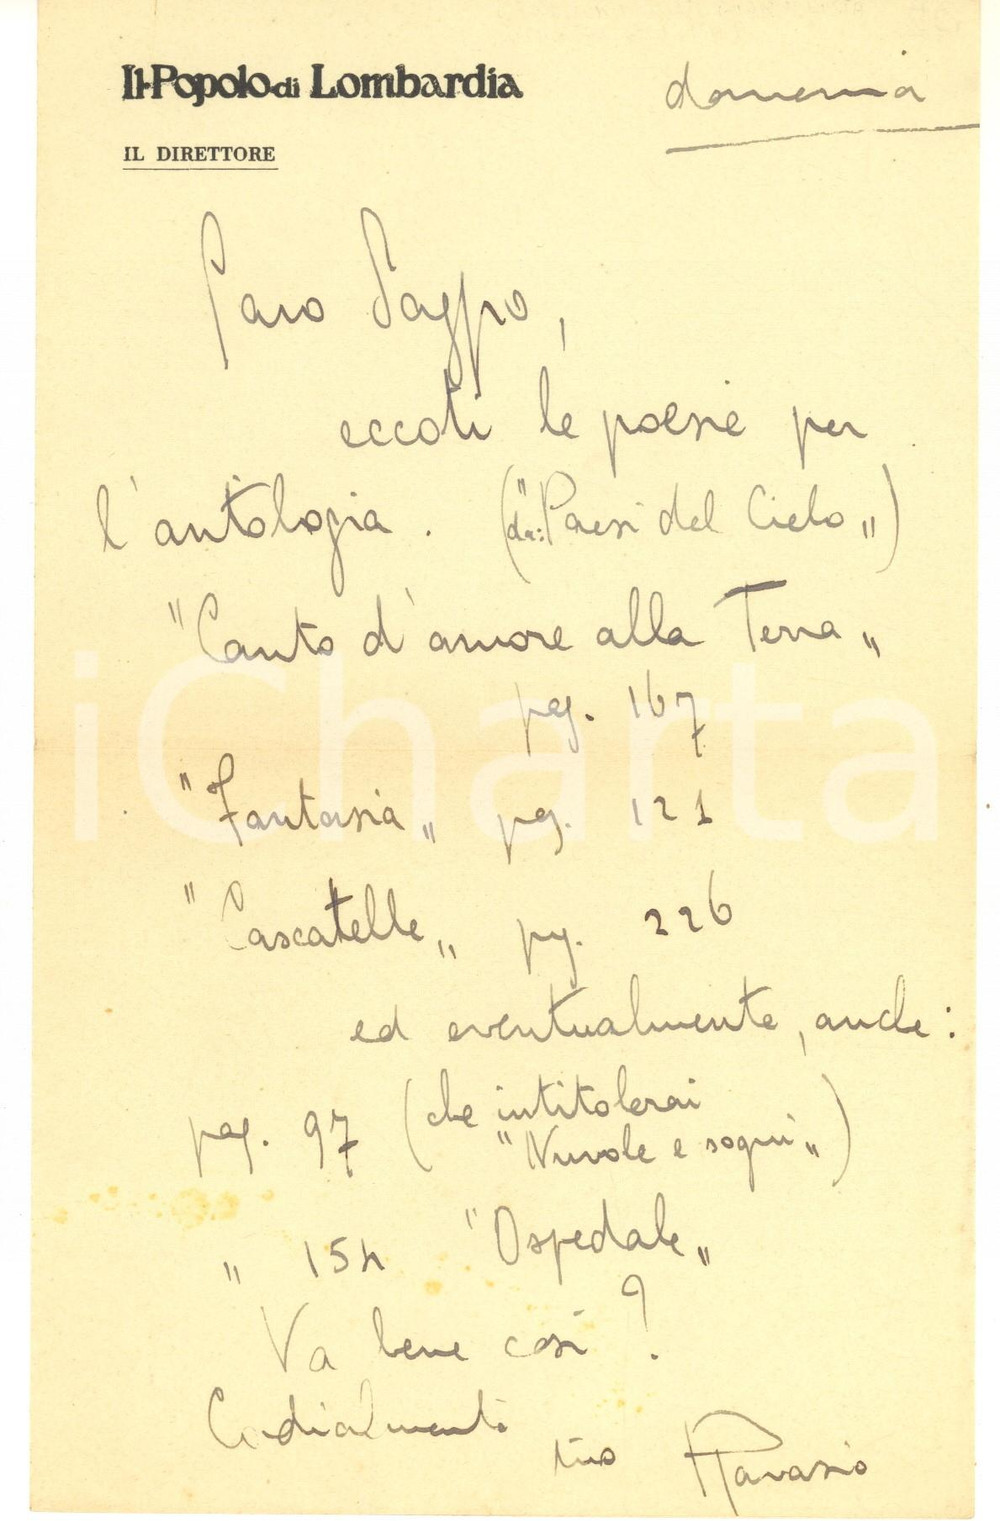 Il Popolo di Lombardia
domenica
IL DIRETTORE
Caro
eccoti le poesie per
l'antologia. (da: "Paesi del Cielo")
"Canto d'amore alla Terra"
pag. 167
"Fantasia" pag. 121
"Cascatelle" pag. 226
ed eventualmente, anche:
pag. 97 (che intitolerai
"Nuvole e sogni")
" 154 "Ospedale"
Va bene così?
Cordialmente
tuo Ravasio
iCharta